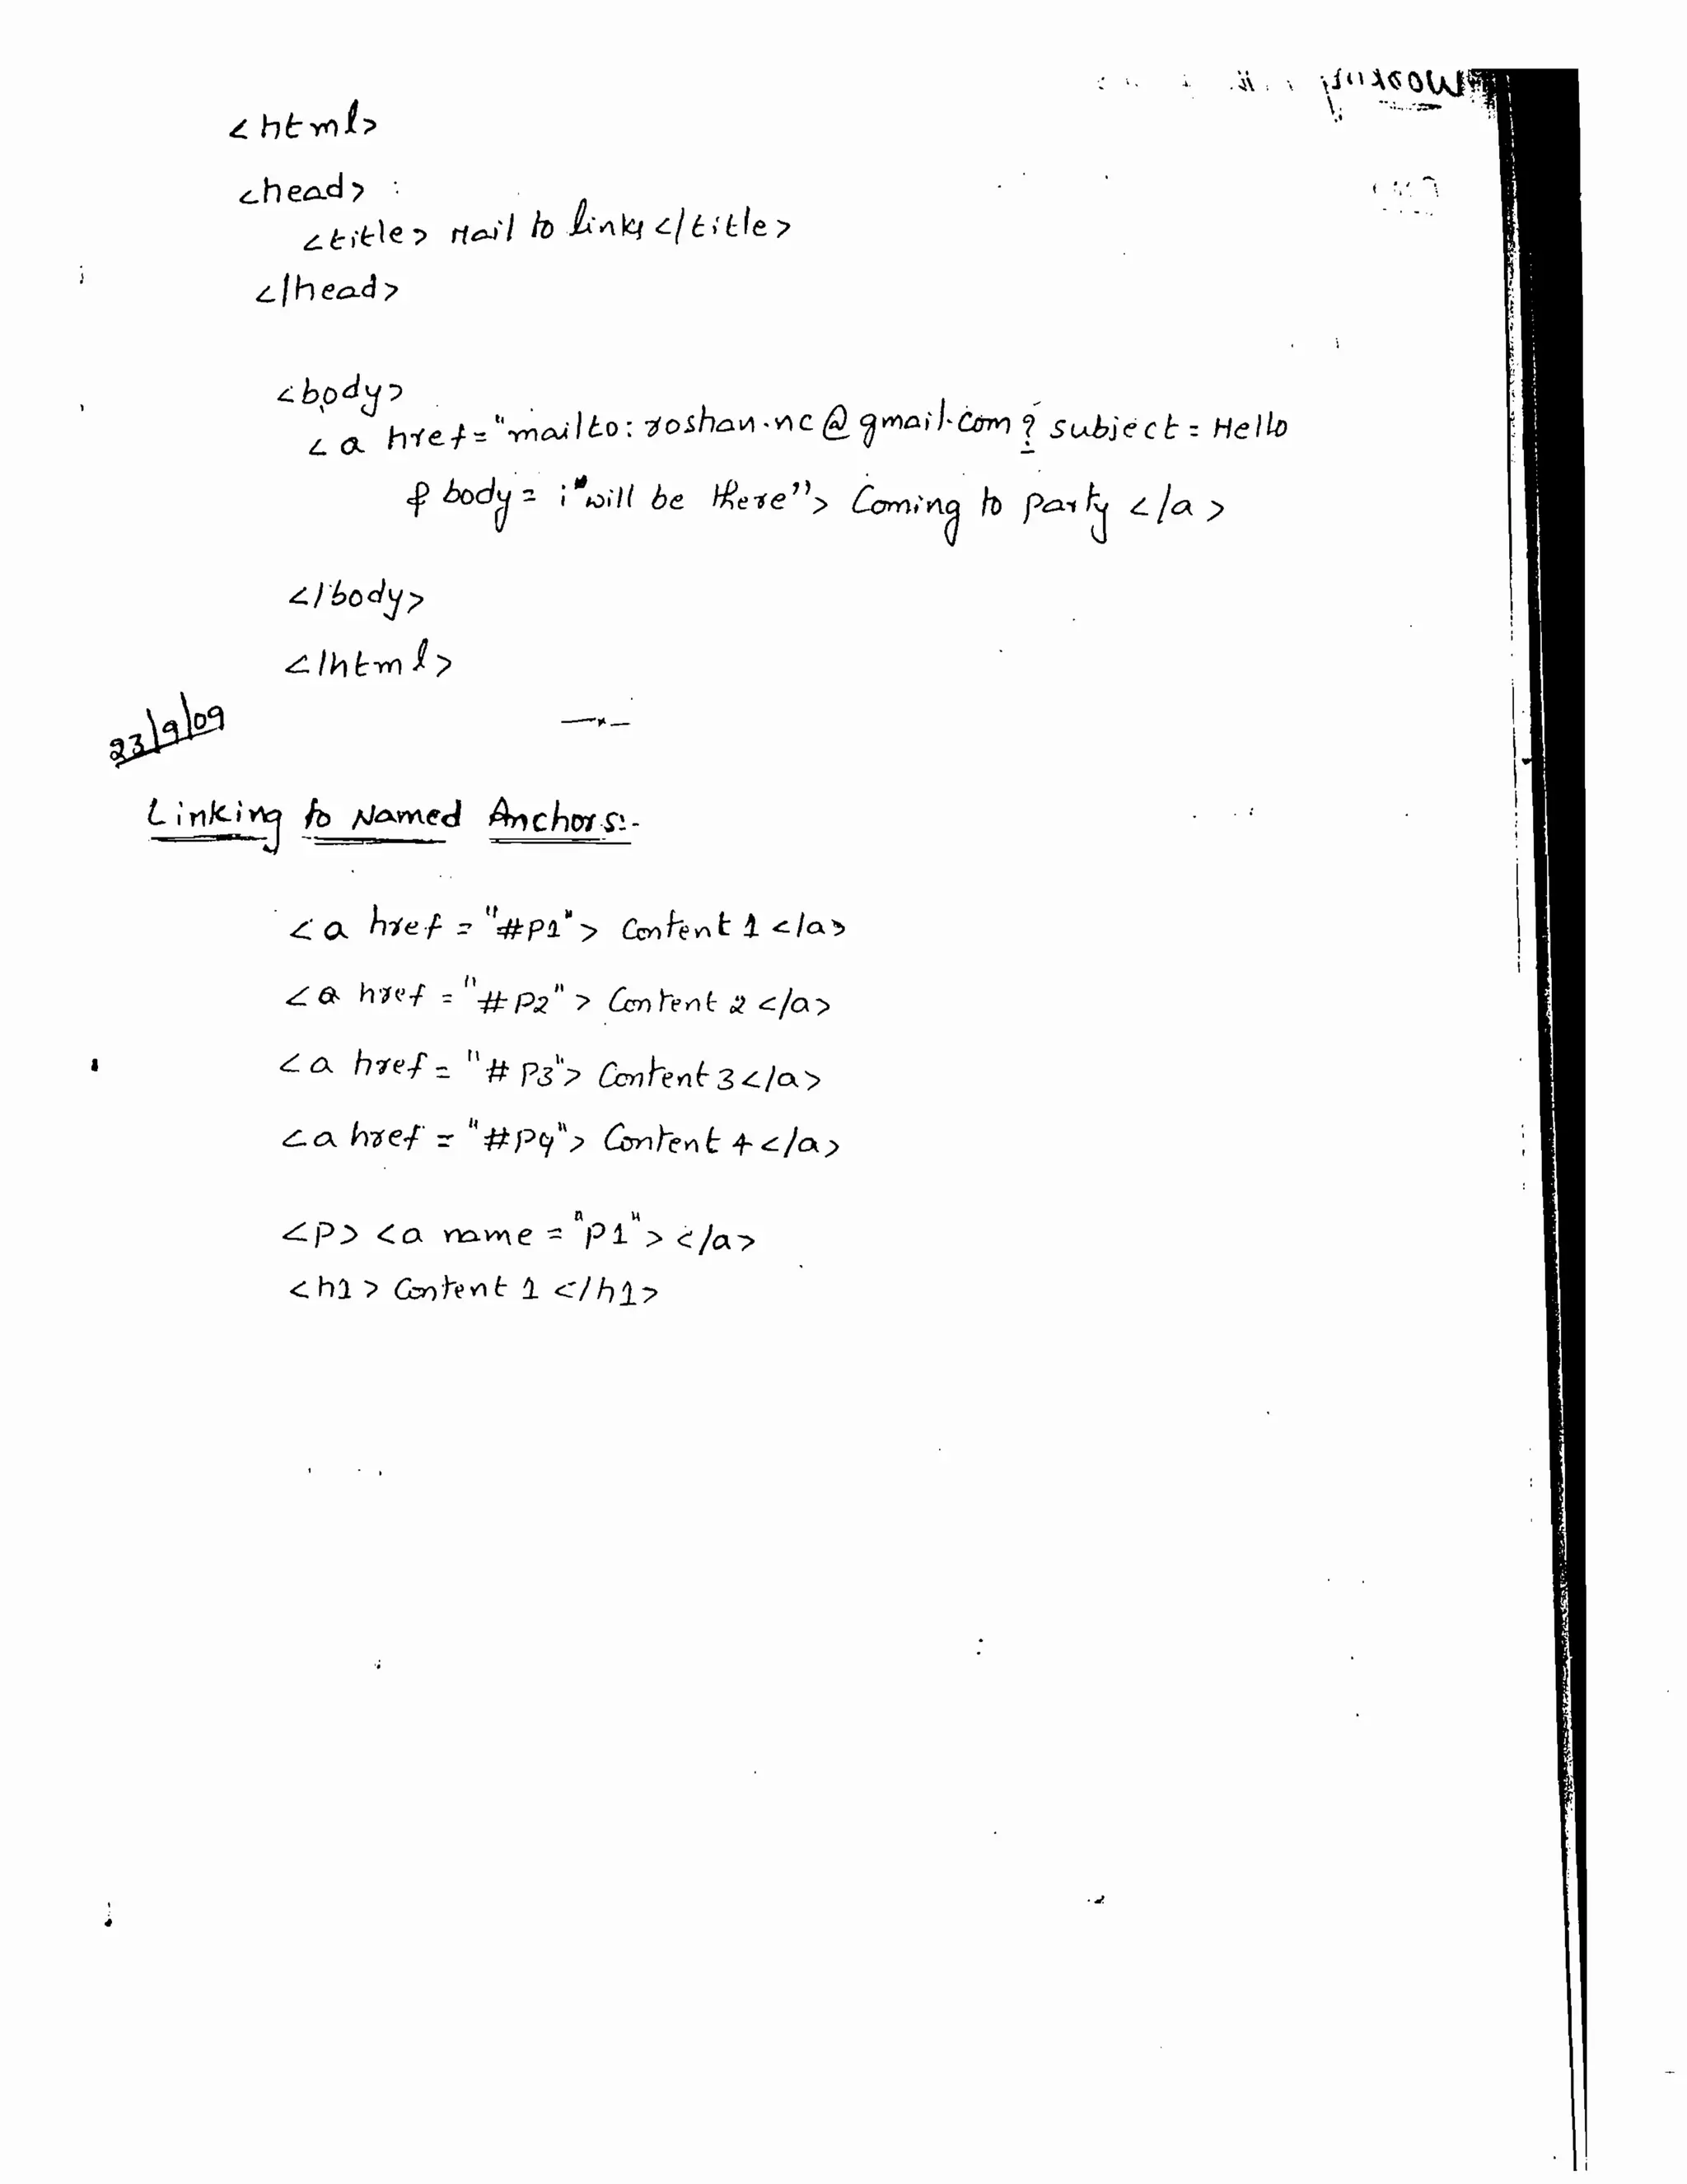 <html>
<head>
<title> Mail to links </title>
</head>
<body>
<a href="mailto: roshan.nc@gmail.com ? subject = Hello
& body = i will be there"> Coming to party </a>
</body>
</html>
23/9/09
Linking to Named Anchors:-
<a href = "#P1"> Content 1 </a>
<a href = "#P2"> Content 2 </a>
<a href = "#P3"> Content 3 </a>
<a href = "#P4"> Content 4 </a>
<P> <a name = "P1"> </a>
<h1> Content 1 </h1>